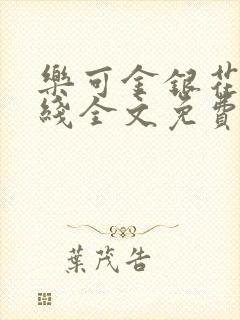 樂可金銀花
綫全文免費
葉茂告